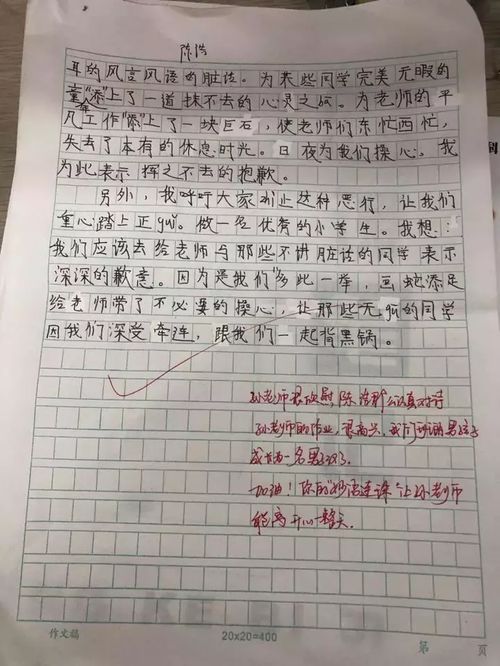 陈浩
耳的风言风语的脏话。为某些同学完美无暇的
童年"添"上了一道抹不去的心灵之灰。为老师的平
凡工作"添"上了一块巨石，使老师们东忙西忙，
失去了本有的休息时光。日夜为我们操心，我
为此表示挥之不去的抱歉。
另外，我呼吁大家制止这种恶行，让我们
重心踏上正guǐ。做一名优秀的小学生。我想：
我们应该去给老师与那些不讲脏话的同学表示
深深的歉意。因为是我们"多此一举，画蛇添足
给老师带了不必要的操心，让那些无gū的同学
因我们深受牵连，跟我们一起背黑锅。
孙老师很欣慰，陈浩那么认真对待
孙老师的作业，很高兴，我们
成为一名男子汉了。
加油！你的"妙语连珠"让孙老师
能高开心一整天。
作文稿
20×20=400
第 页